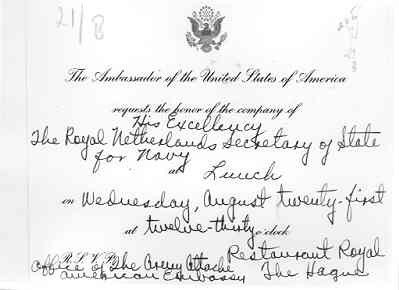 21/8
The Ambassador of the United States of America
requests the honor of the company of
His Excellency
The Royal Netherlands Secretary of State
for Navy
at Lunch
on Wednesday, August twenty-first
at twelve-thirty o'clock
R.S.V.P. Restaurant Royal
Office of The Army Attache The Hague
American Embassy